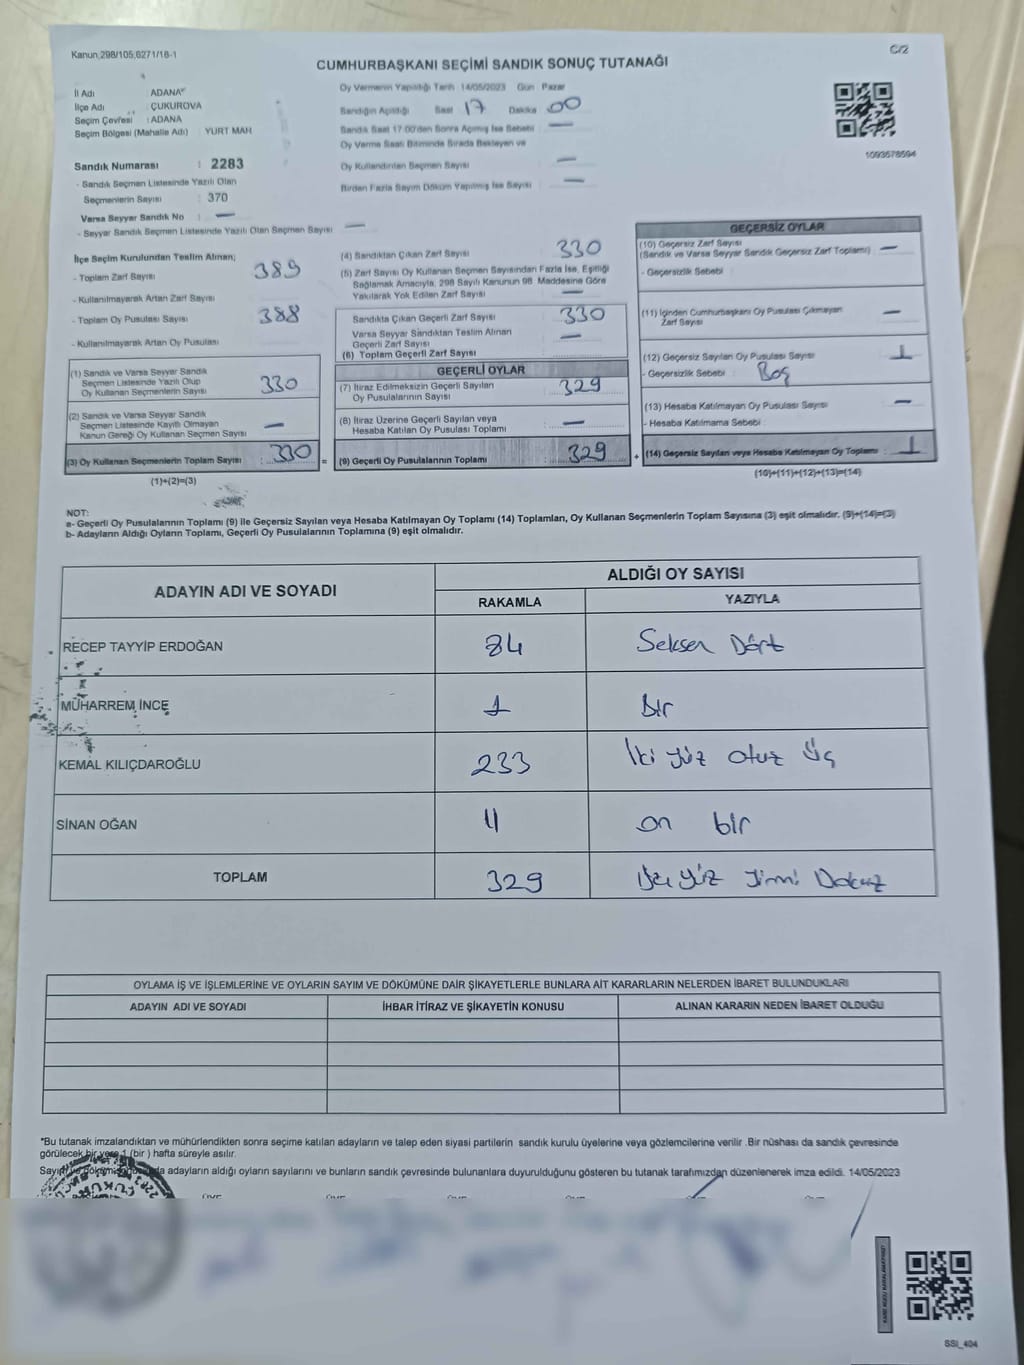 Kanun,298/105,6271/16-1
C/2
CUMHURBAŞKANI SEÇİMİ SANDIK SONUÇ TUTANAĞI
İl Adı : ADANA
İlçe Adı : ÇUKUROVA
Seçim Çevresi : ADANA
Seçim Bölgesi (Mahalle Adı) : YURT MAH
Sandık Numarası : 2283
- Sandık Seçmen Listesinde Yazılı Olan
Seçmenlerin Sayısı : 370
Varsa Seyyar Sandık No : —
- Seyyar Sandık Seçmen Listesinde Yazılı Olan Seçmen Sayısı : —
Oy Vermenin Yapıldığı Tarih :14/05/2023 Gün : Pazar
Sandığın Açıldığı Saat : 17 Dakika : 00
Sandık Saat 17:00'den Sonra Açılmış İse Sebebi : —
Oy Verme Saati Bitiminde Sırada Bekleyen ve
Oy Kullandırılan Seçmen Sayısı : —
Birden Fazla Sayım Döküm Yapılmış İse Sayısı : —
1093578594
İlçe Seçim Kurulundan Teslim Alınan;
- Toplam Zarf Sayısı : 389
- Kullanılmayarak Artan Zarf Sayısı :
- Toplam Oy Pusulası Sayısı : 388
- Kullanılmayarak Artan Oy Pusulası :
(1) Sandık ve Varsa Seyyar Sandık
Seçmen Listesinde Yazılı Olup
Oy Kullanan Seçmenlerin Sayısı : 330
(2) Sandık ve Varsa Seyyar Sandık
Seçmen Listesinde Kayıtlı Olmayan
Kanun Gereği Oy Kullanan Seçmen Sayısı : —
(3) Oy Kullanan Seçmenlerin Toplam Sayısı : 330
=
(1)+(2)=(3)
(4) Sandıktan Çıkan Zarf Sayısı : 330
(5) Zarf Sayısı Oy Kullanan Seçmen Sayısından Fazla İse, Eşitliği
Sağlamak Amacıyla, 298 Sayılı Kanunun 98. Maddesine Göre
Yakılarak Yok Edilen Zarf Sayısı : —
Sandıkta Çıkan Geçerli Zarf Sayısı : 330
Varsa Seyyar Sandıktan Teslim Alınan
Geçerli Zarf Sayısı : —
(6) Toplam Geçerli Zarf Sayısı :
GEÇERLİ OYLAR
(7) İtiraz Edilmeksizin Geçerli Sayılan
Oy Pusulalarının Sayısı : 329
(8) İtiraz Üzerine Geçerli Sayılan veya
Hesaba Katılan Oy Pusulası Toplamı : —
(9) Geçerli Oy Pusulalarının Toplamı : 329
+
GEÇERSİZ OYLAR
(10) Geçersiz Zarf Sayısı
(Sandık ve Varsa Seyyar Sandık Geçersiz Zarf Toplamı) : —
- Geçersizlik Sebebi :
(11) İçinden Cumhurbaşkanı Oy Pusulası Çıkmayan
Zarf Sayısı : —
(12) Geçersiz Sayılan Oy Pusulası Sayısı : 1
- Geçersizlik Sebebi : Boş
(13) Hesaba Katılmayan Oy Pusulası Sayısı : —
- Hesaba Katılmama Sebebi :
(14) Geçersiz Sayılan veya Hesaba Katılmayan Oy Toplamı : 1
(10)+(11)+(12)+(13)=(14)
NOT:
a- Geçerli Oy Pusulalarının Toplamı (9) ile Geçersiz Sayılan veya Hesaba Katılmayan Oy Toplamı (14) Toplamları, Oy Kullanan Seçmenlerin Toplam Sayısına (3) eşit olmalıdır. (9)+(14)=(3)
b- Adayların Aldığı Oyların Toplamı, Geçerli Oy Pusulalarının Toplamına (9) eşit olmalıdır.
ADAYIN ADI VE SOYADI
ALDIĞI OY SAYISI
RAKAMLA
YAZIYLA
RECEP TAYYİP ERDOĞAN 84 Seksen Dört
MUHARREM İNCE 1 Bir
KEMAL KILIÇDAROĞLU 233 İki yüz otuz üç
SİNAN OĞAN 11 on bir
TOPLAM 329 Üç yüz yirmi Dokuz
OYLAMA İŞ VE İŞLEMLERİNE VE OYLARIN SAYIM VE DÖKÜMÜNE DAİR ŞİKAYETLERLE BUNLARA AİT KARARLARIN NELERDEN İBARET BULUNDUKLARI
ADAYIN ADI VE SOYADI
İHBAR İTİRAZ VE ŞİKAYETİN KONUSU
ALINAN KARARIN NEDEN İBARET OLDUĞU
*Bu tutanak imzalandıktan ve mühürlendikten sonra seçime katılan adayların ve talep eden siyasi partilerin sandık kurulu üyelerine veya gözlemcilerine verilir .Bir nüshası da sandık çevresinde
görülecek bir yere 1 (bir ) hafta süreyle asılır.
adayların aldığı oyların sayılarını ve bunların sandık çevresinde bulunanlara duyurulduğunu gösteren bu tutanak tarafımızdan düzenlenerek imza edildi. 14/05/2023
SSI_404